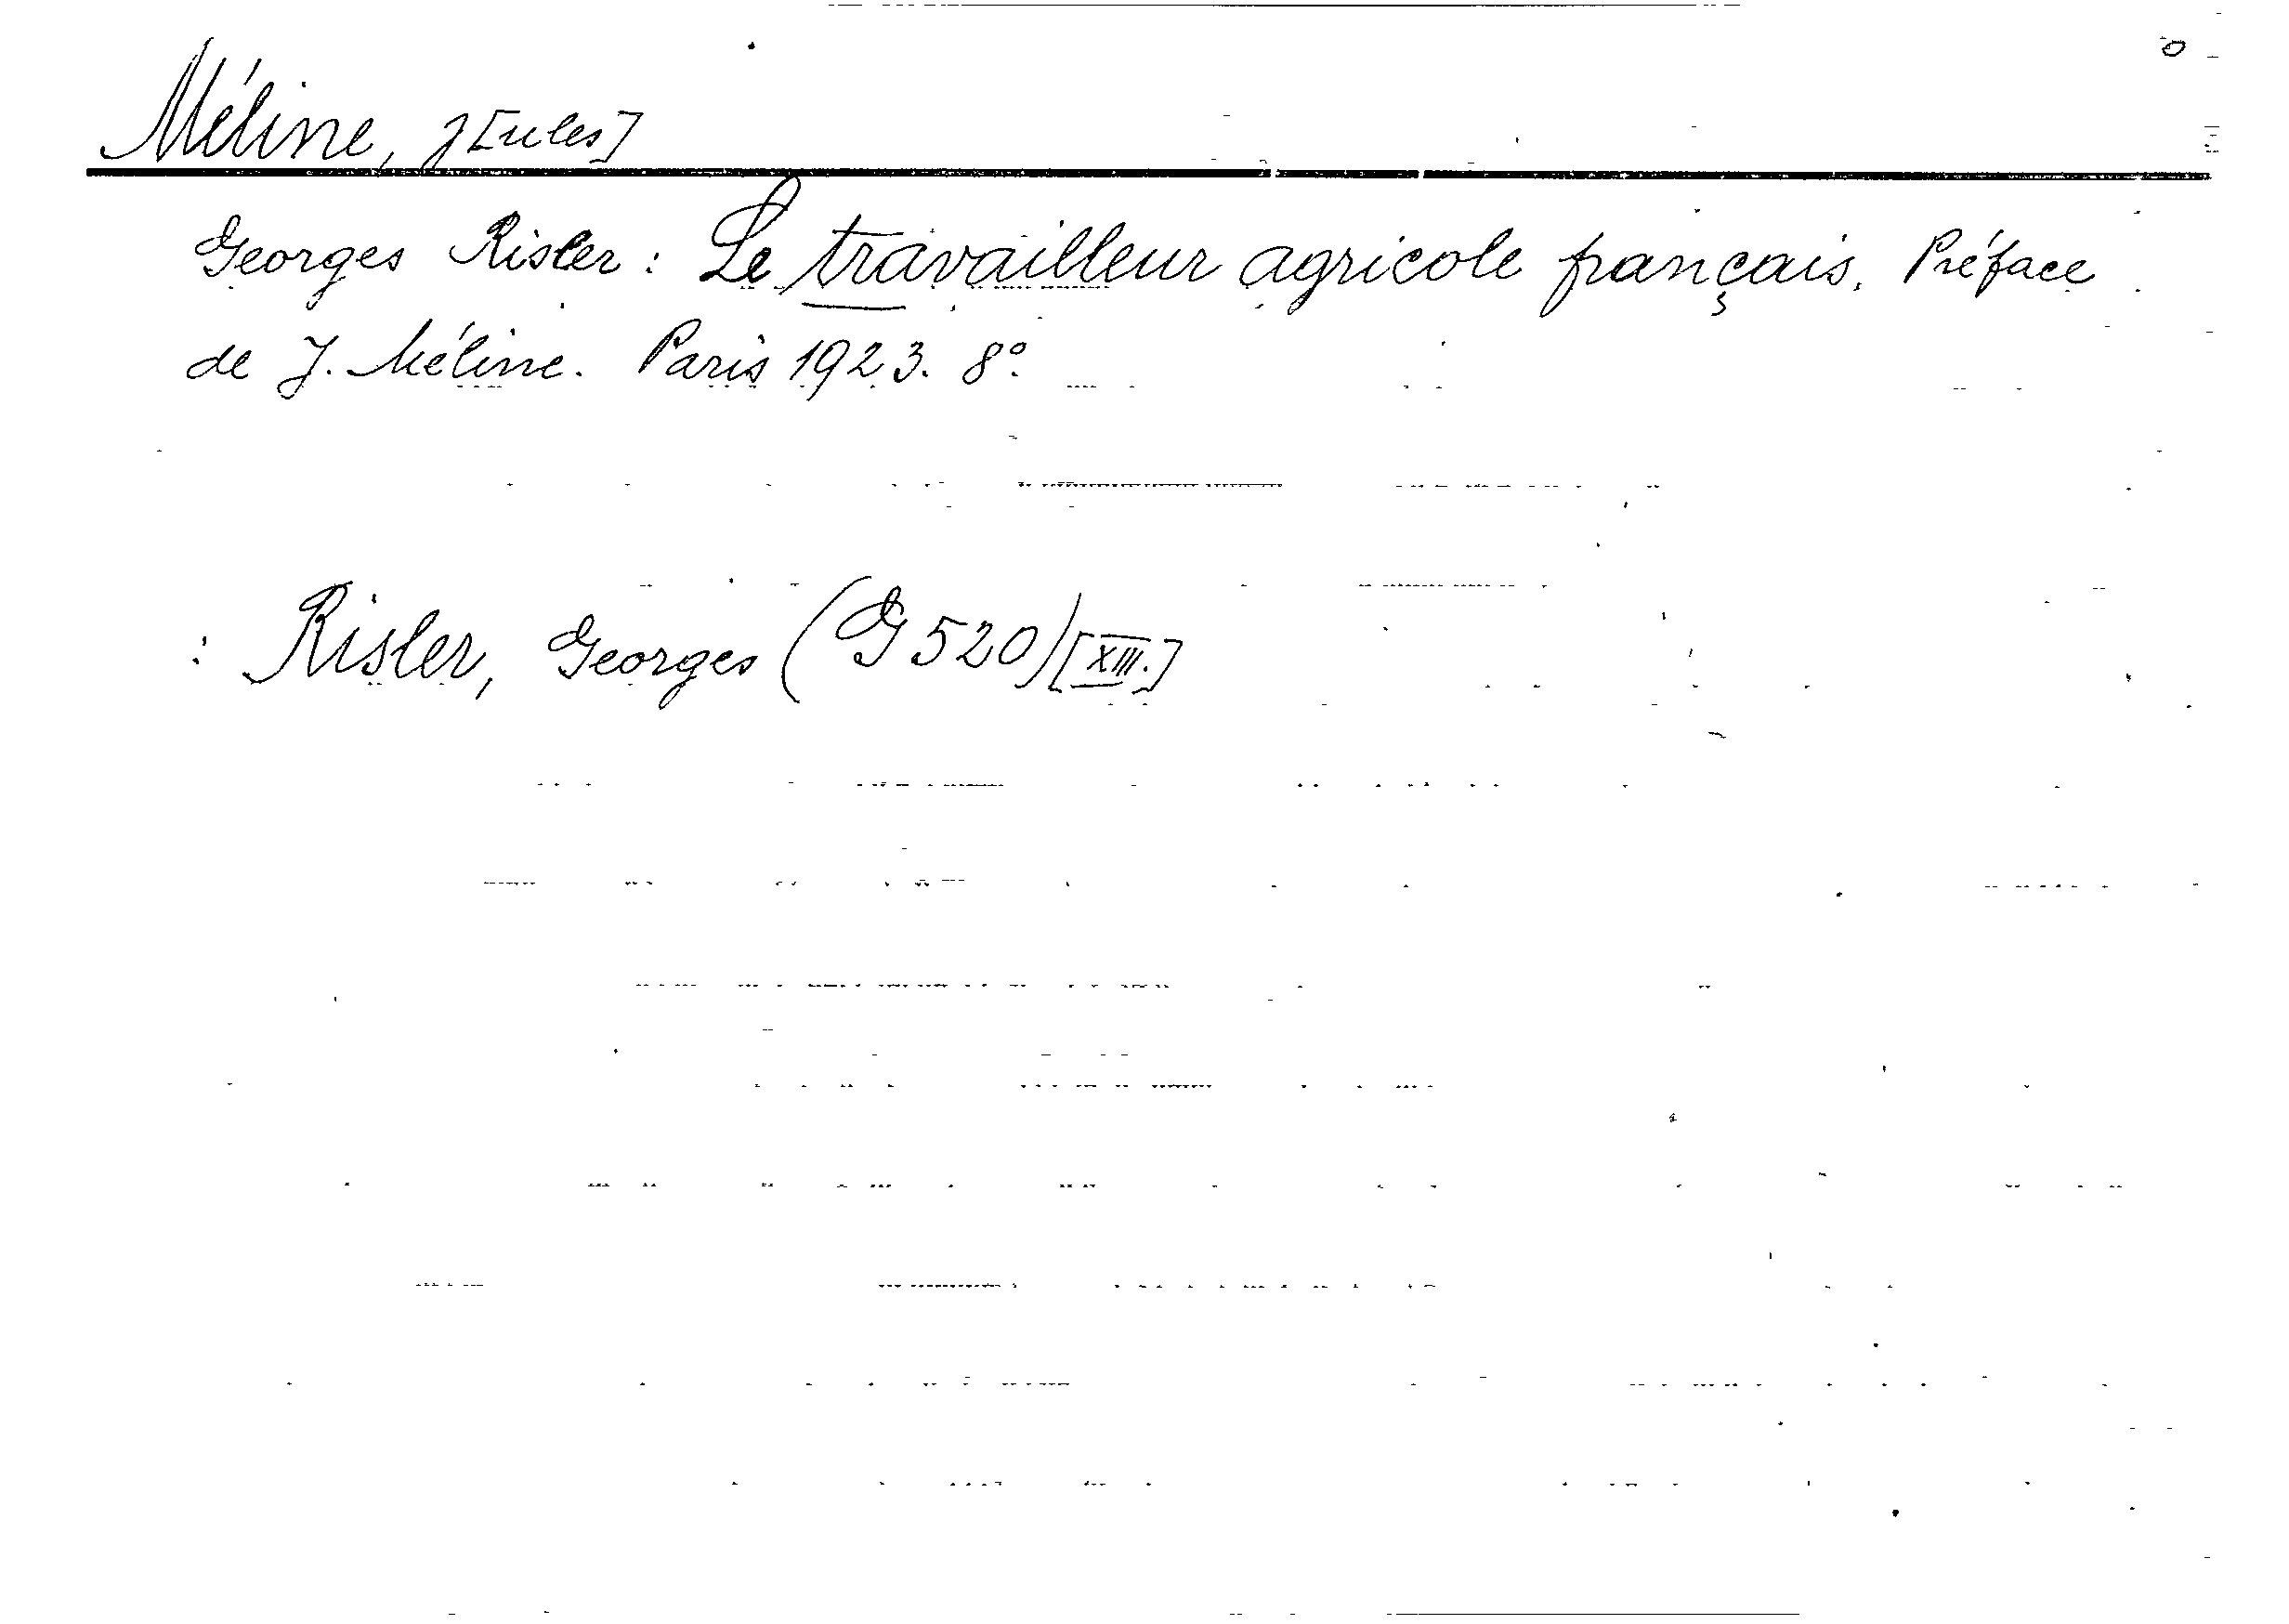 Méline, J[ules]
Georges Risler: Le travailleur agricole français. Préface
de J. Méline. Paris 1923. 8°
: Risler, Georges (G 520) [XIII.]